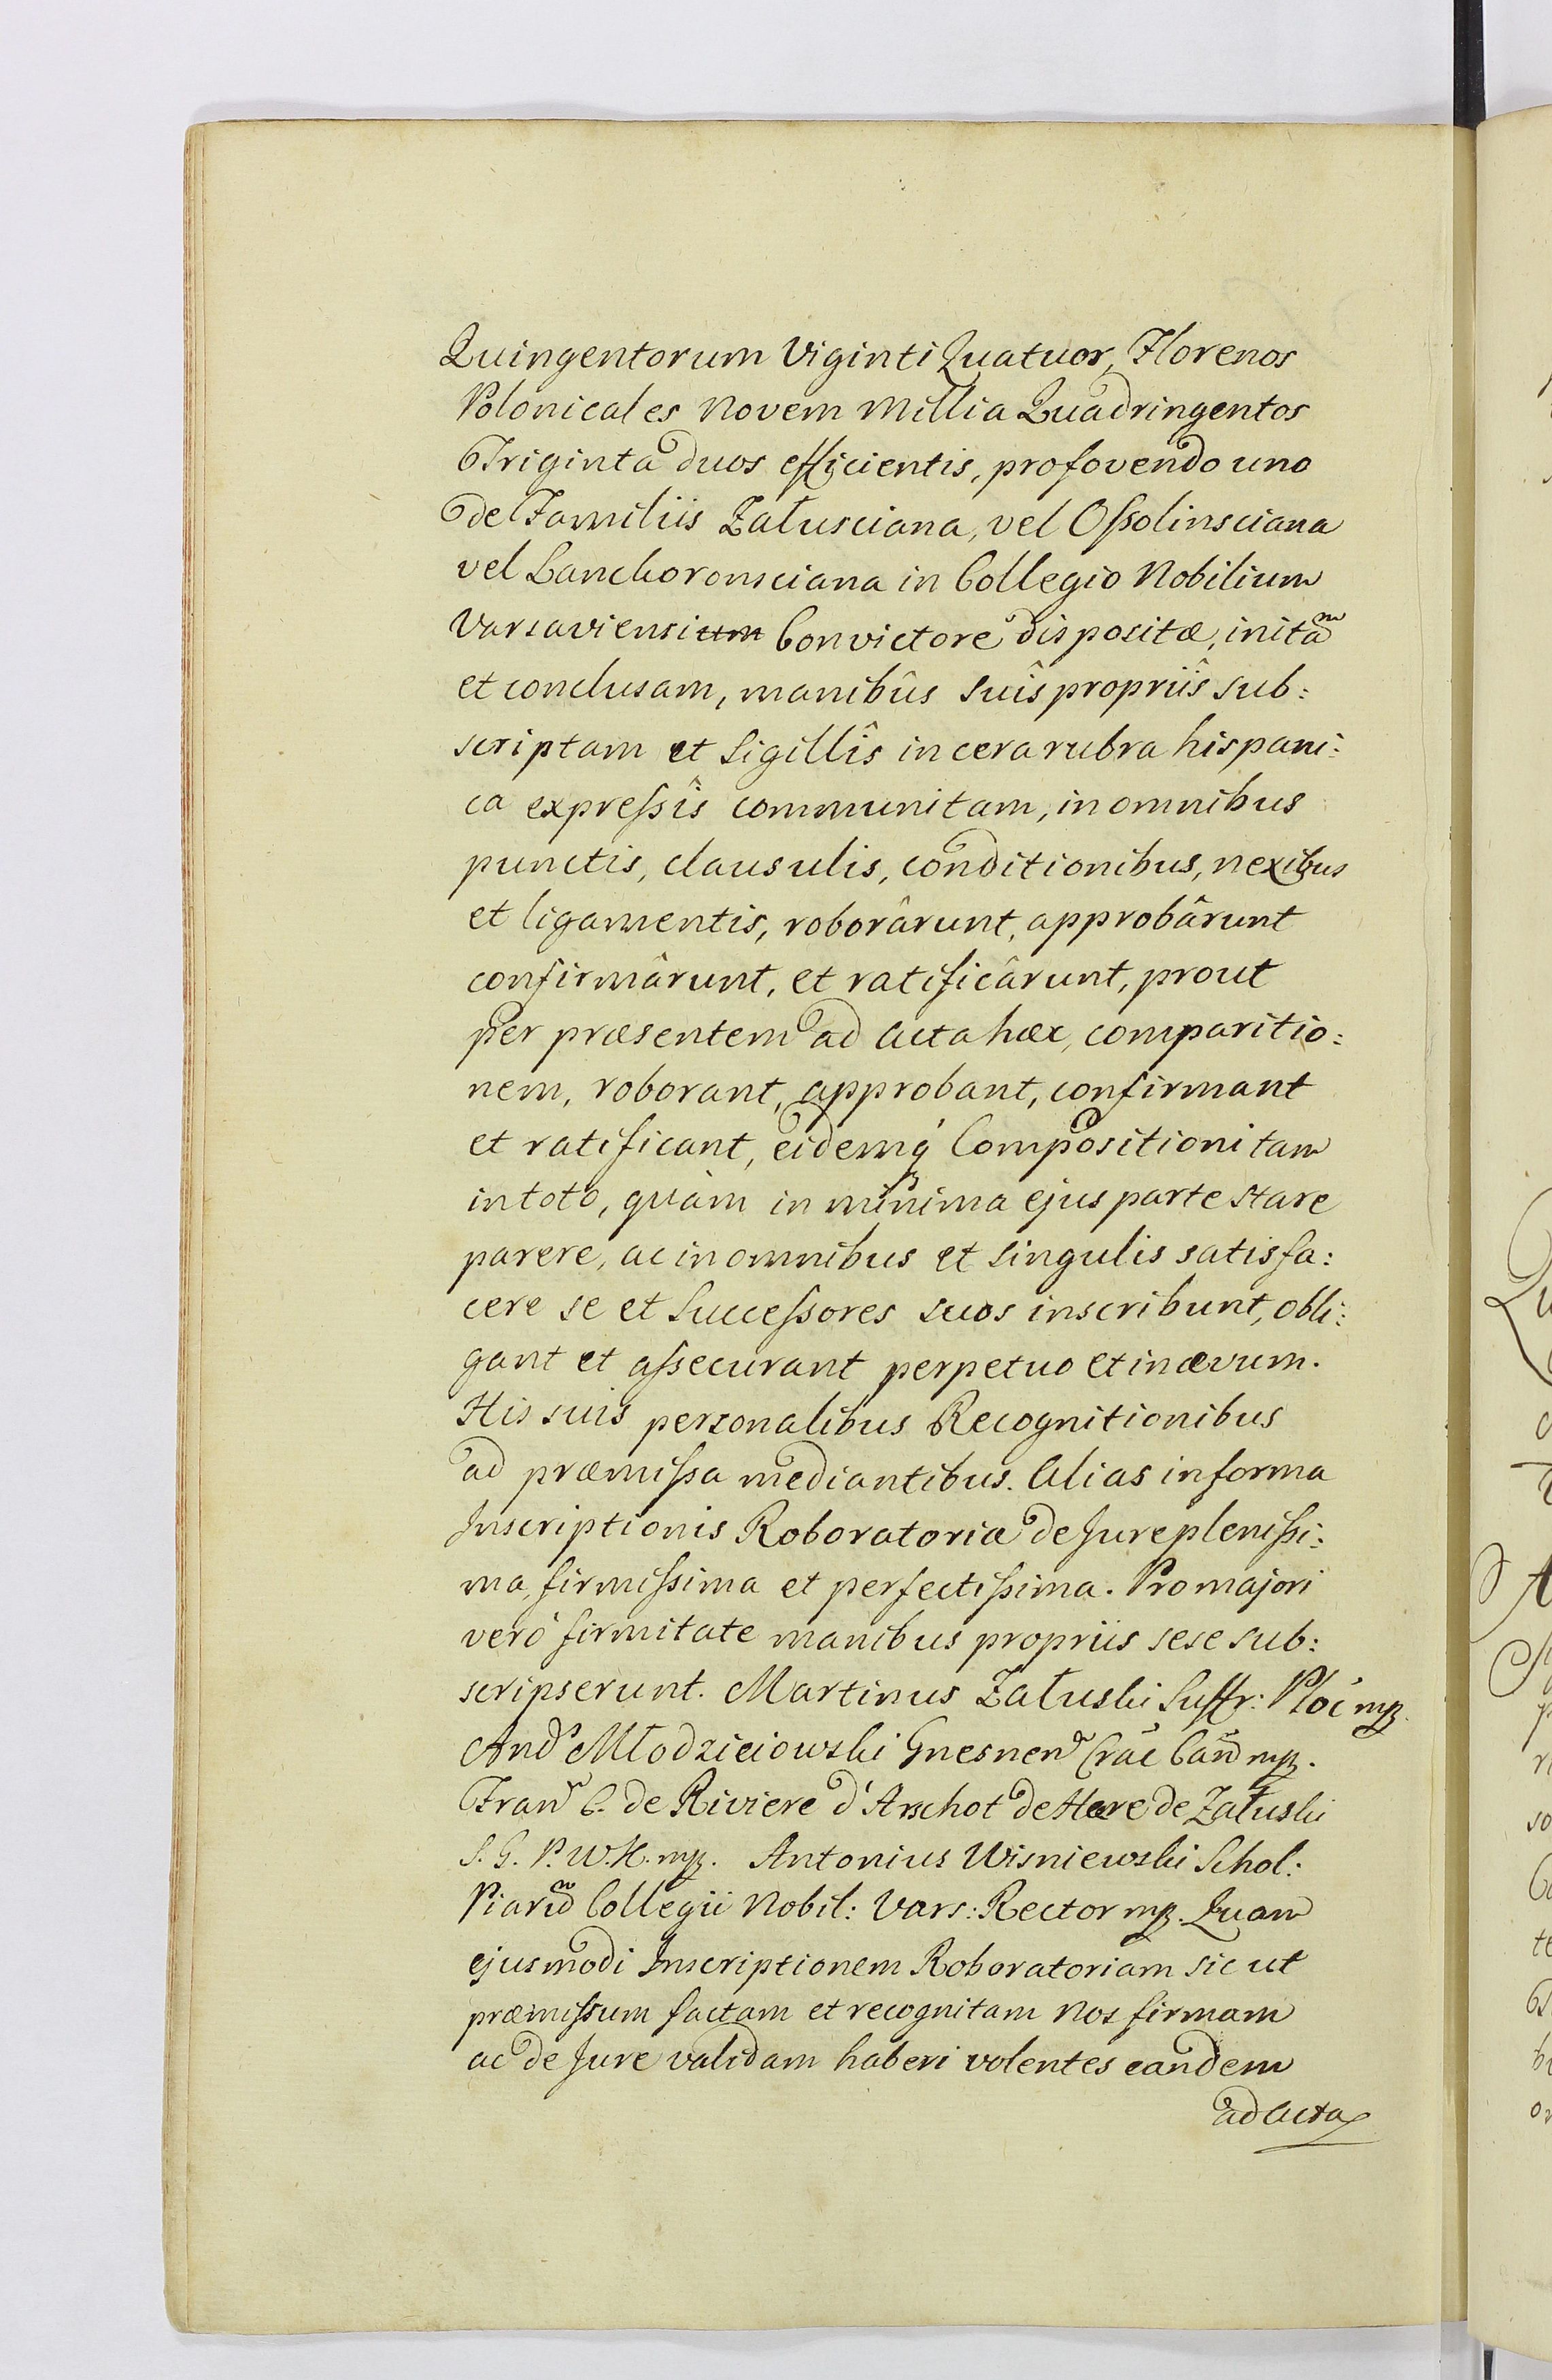 Quingentorum Viginti Quatuor, Florenos
Polonicales Novem Millia Quadringentos
Triginta duos efficientis, pro fovendo uno
de Familiis Załusciana, vel Oſsolinsciana
vel Lanckoronsciana in Collegio Nobilium
Varsaviensium Convictore dispositæ, initam
et conclusam, manibûs suîs propriîs sub:
scriptam et Sigillîs in cera rubra hispani:
ca expreſsîs communitam, in omnibus
punctis, clausulis, conditionibus, nexibus
et ligamentis, roborârunt, approbârunt
confirmârunt, et ratificârunt, prout
per præsentem ad Acta hæc, comparitio:
nem, roborant, approbant, confirmant
et ratificant, eidemq́ Compositioni tam
in toto, quàm in minima ejus parte stare
parere, ac in omnibus et singulis satisfa:
cere se et Succeſsores suos inscribunt, obli:
gant et aſsecurant perpetuo et in ævum.
His suis personalibus Recognitionibus
ad præmiſsa mediantibus. Alias in forma
Inscriptionis Roboratoria de Jure pleniſsi:
ma, firmiſsima et perfectiſsima. Pro majori
verò firmitate manibus propriis sese sub:
scripserunt. Martinus Załuski Suffr: Ploc mp.
And Młodzieiowski Gnesnen Crac Can mp.
Fran C. de Riviere d'Arschot de Here de Załuski
S. G. P. W. K. mp. Antonius Wisniewski Schol:
Piarum Collegii Nobil: Vars: Rector mp. Quam
ejusmodi Inscriptionem Roboratoriam sic ut
præmiſsum factam et recognitam Nos firmam
ac de Jure validam haberi volentes eandem
ad Acta